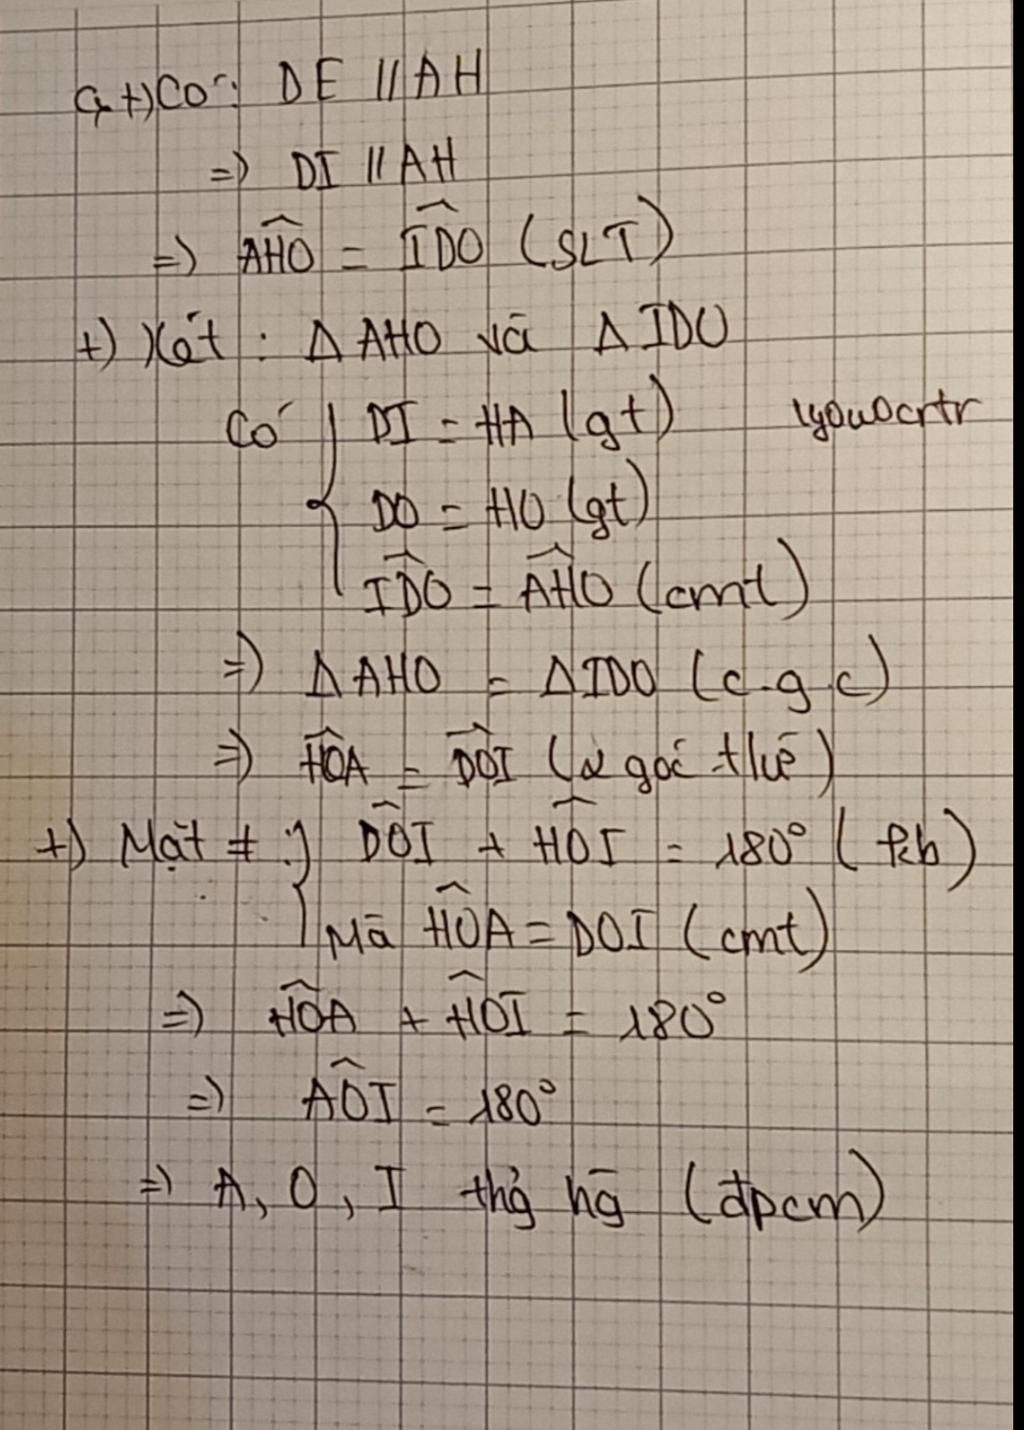 +) Có: DE // AH
=) DI // AH
=) AĤO = ID̂O (SLT)
+) Xét: Δ AHO và Δ IDO
Có { DI = HA (gt)
DO = HO (gt)
ID̂O = AĤO (cmt)
=) Δ AHO = Δ IDO (c.g.c)
=) HÔA = DÔI (2 góc t/ứ)
+) Mặt ≠ : } DÔI + HÔI = 180° (kb)
{ Mà HÔA = DOI (cmt)
=) HÔA + HÔI = 180°
=) AÔI = 180°
=) A, O, I thẳg hg̀ (đpcm)